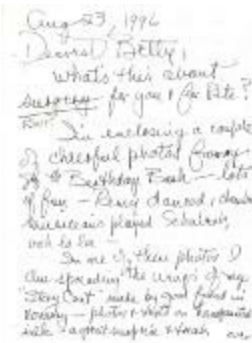 Aug 23, 1996
Dearest Betty,
What's this about
surgery for you & for Pete?
I'm enclosing a couple
of cheerful photos from
Birthday Bash - lots
of fun - danced,
musicians played Schubert,
ooh la la -
In one of these photos I
am spreading the wings of my
"Story Coat" made by good friend in
- photos & on
silk - a great surprise &
over